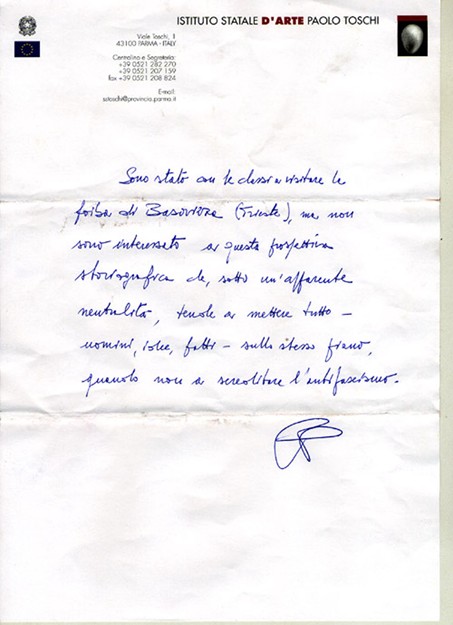 ISTITUTO STATALE D'ARTE PAOLO TOSCHI
Viale Toschi, 1
43100 PARMA - ITALY
Centralino e Segreteria:
+39 0521 282 270
+39 0521 207 159
fax +39 0521 208 824
E-mail:
sstoschi@provincia.parma.it
Sono stato con le classi a visitare la
foiba di Basovizza (Trieste), ma non
sono interessato a questa prospettiva
storiografica che, sotto un'apparente
neutralità, tende a mettere tutto –
uomini, idee, fatti – sullo stesso piano,
quando non a screditare l'antifascismo.